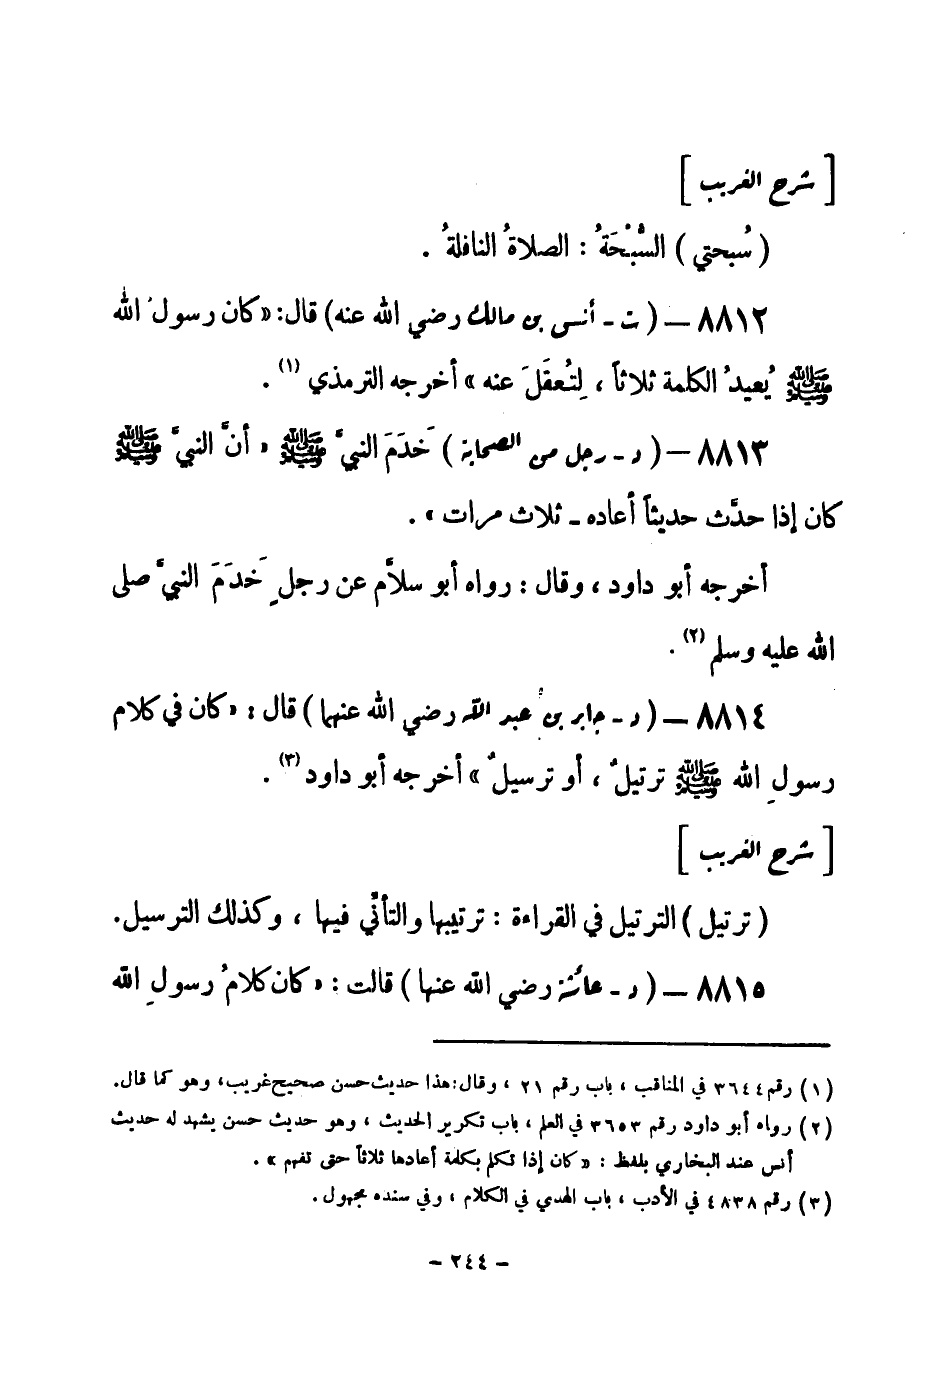 [ شرح الغريب ]
( سُبحتي ) السُّبْحَةُ : الصلاةُ النافلةُ .
٨٨١٢ — ( ت - أنس بن مالك رضي الله عنه) قال: « كان رسولُ الله
ﷺ يُعيدُ الكلمة ثلاثاً ، لِتُعقَلَ عنه » أخرجه الترمذي (١) .
٨٨١٣ — ( د - رجل من الصحابة ) خَدَمَ النبيَّ ﷺ « أنَّ النبيَّ ﷺ
كان إذا حدَّث حديثاً أعاده - ثلاث مرات » .
أخرجه أبو داود ، وقال : رواه أبو سلاَّم عن رجلٍ خَدَمَ النبيَّ صلى
الله عليه وسلم (٢) .
٨٨١٤ — ( د - جابر بن عبد الله رضي الله عنهما ) قال : « كان في كلام
رسولِ الله ﷺ ترتيلٌ ، أو ترسيلٌ » أخرجه أبو داود (٣) .
[ شرح الغريب ]
( ترتيل ) الترتيل في القراءة : ترتيبها والتأنِّي فيها ، وكذلك الترسيل.
٨٨١٥ — ( د - عائشة رضي الله عنها ) قالت : « كان كلامُ رسولِ الله
(١) رقم ٣٦٤٤ في المناقب ، باب رقم ٢١ ، وقال : هذا حديث حسن صحيح غريب، وهو كما قال.
(٢) رواه أبو داود رقم ٣٦٥٣ في العلم ، باب تكرير الحديث ، وهو حديث حسن يشهد له حديث
أنس عند البخاري بلفظ : « كان إذا تكلم بكلمة أعادها ثلاثاً حتى تفهم » .
(٣) رقم ٤٨٣٨ في الأدب ، باب الهدي في الكلام ، وفي سنده مجهول .
- ٢٤٤ -